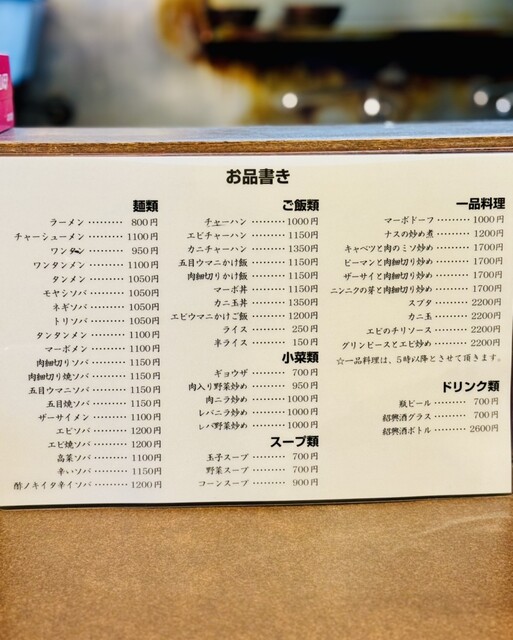 お品書き
麺類
ラーメン ……… 800円
チャーシューメン ……… 1100円
ワンタン ……… 950円
ワンタンメン ……… 1100円
タンメン ……… 1050円
モヤシソバ ……… 1050円
ネギソバ ……… 1050円
トリソバ ……… 1050円
タンタンメン ……… 1100円
マーボメン ……… 1100円
肉細切りソバ ……… 1150円
肉細切り焼ソバ ……… 1150円
五目ウマニソバ ……… 1150円
五目焼ソバ ……… 1150円
ザーサイメン ……… 1100円
エビソバ ……… 1200円
エビ焼ソバ ……… 1200円
高菜ソバ ……… 1100円
辛いソバ ……… 1150円
酢ノキイタ辛イソバ ……… 1200円
ご飯類
チャーハン ……… 1000円
エビチャーハン ……… 1150円
カニチャーハン ……… 1350円
五目ウマニかけ飯 ……… 1150円
肉細切りかけ飯 ……… 1150円
マーボ丼 ……… 1150円
カニ玉丼 ……… 1350円
エビウマニかけご飯 ……… 1200円
ライス ……… 250円
半ライス ……… 150円
小菜類
ギョウザ ……… 700円
肉入り野菜炒め ……… 950円
肉ニラ炒め ……… 1000円
レバニラ炒め ……… 1000円
レバ野菜炒め ……… 1000円
スープ類
玉子スープ ……… 700円
野菜スープ ……… 700円
コーンスープ ……… 900円
一品料理
マーボドーフ ……… 1000円
ナスの炒め煮 ……… 1200円
キャベツと肉のミソ炒め ……… 1700円
ピーマンと肉細切り炒め ……… 1700円
ザーサイと肉細切り炒め ……… 1700円
ニンニクの芽と肉細切り炒め ……… 1700円
スブタ ……… 2200円
カニ玉 ……… 2200円
エビのチリソース ……… 2200円
グリンピースとエビ炒め ……… 2200円
☆一品料理は、5時以降とさせて頂きます。
ドリンク類
瓶ビール ……… 700円
紹興酒グラス ……… 700円
紹興酒ボトル ……… 2600円